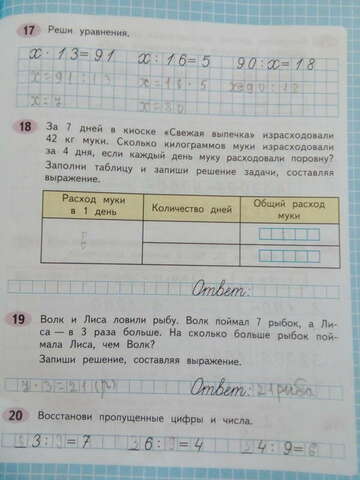 17 Реши уравнения.
x · 13 = 91 x : 16 = 5 90 : x = 18
x = 91 : 13 x = 16 · 5 x = 90 : 18
x = 7 x = 80
18 За 7 дней в киоске «Свежая выпечка» израсходовали
42 кг муки. Сколько килограммов муки израсходовали
за 4 дня, если каждый день муку расходовали поровну?
Заполни таблицу и запиши решение задачи, составляя
выражение.
Расход муки в 1 день Количество дней Общий расход муки
Ответ:
19 Волк и Лиса ловили рыбу. Волк поймал 7 рыбок, а Ли-
са — в 3 раза больше. На сколько больше рыбок пой-
мала Лиса, чем Волк?
Запиши решение, составляя выражение.
7 · 3 = 21 (р) Ответ: 21 рыба
20 Восстанови пропущенные цифры и числа.
3 : = 7 6 : = 4 4 : 9 = 6